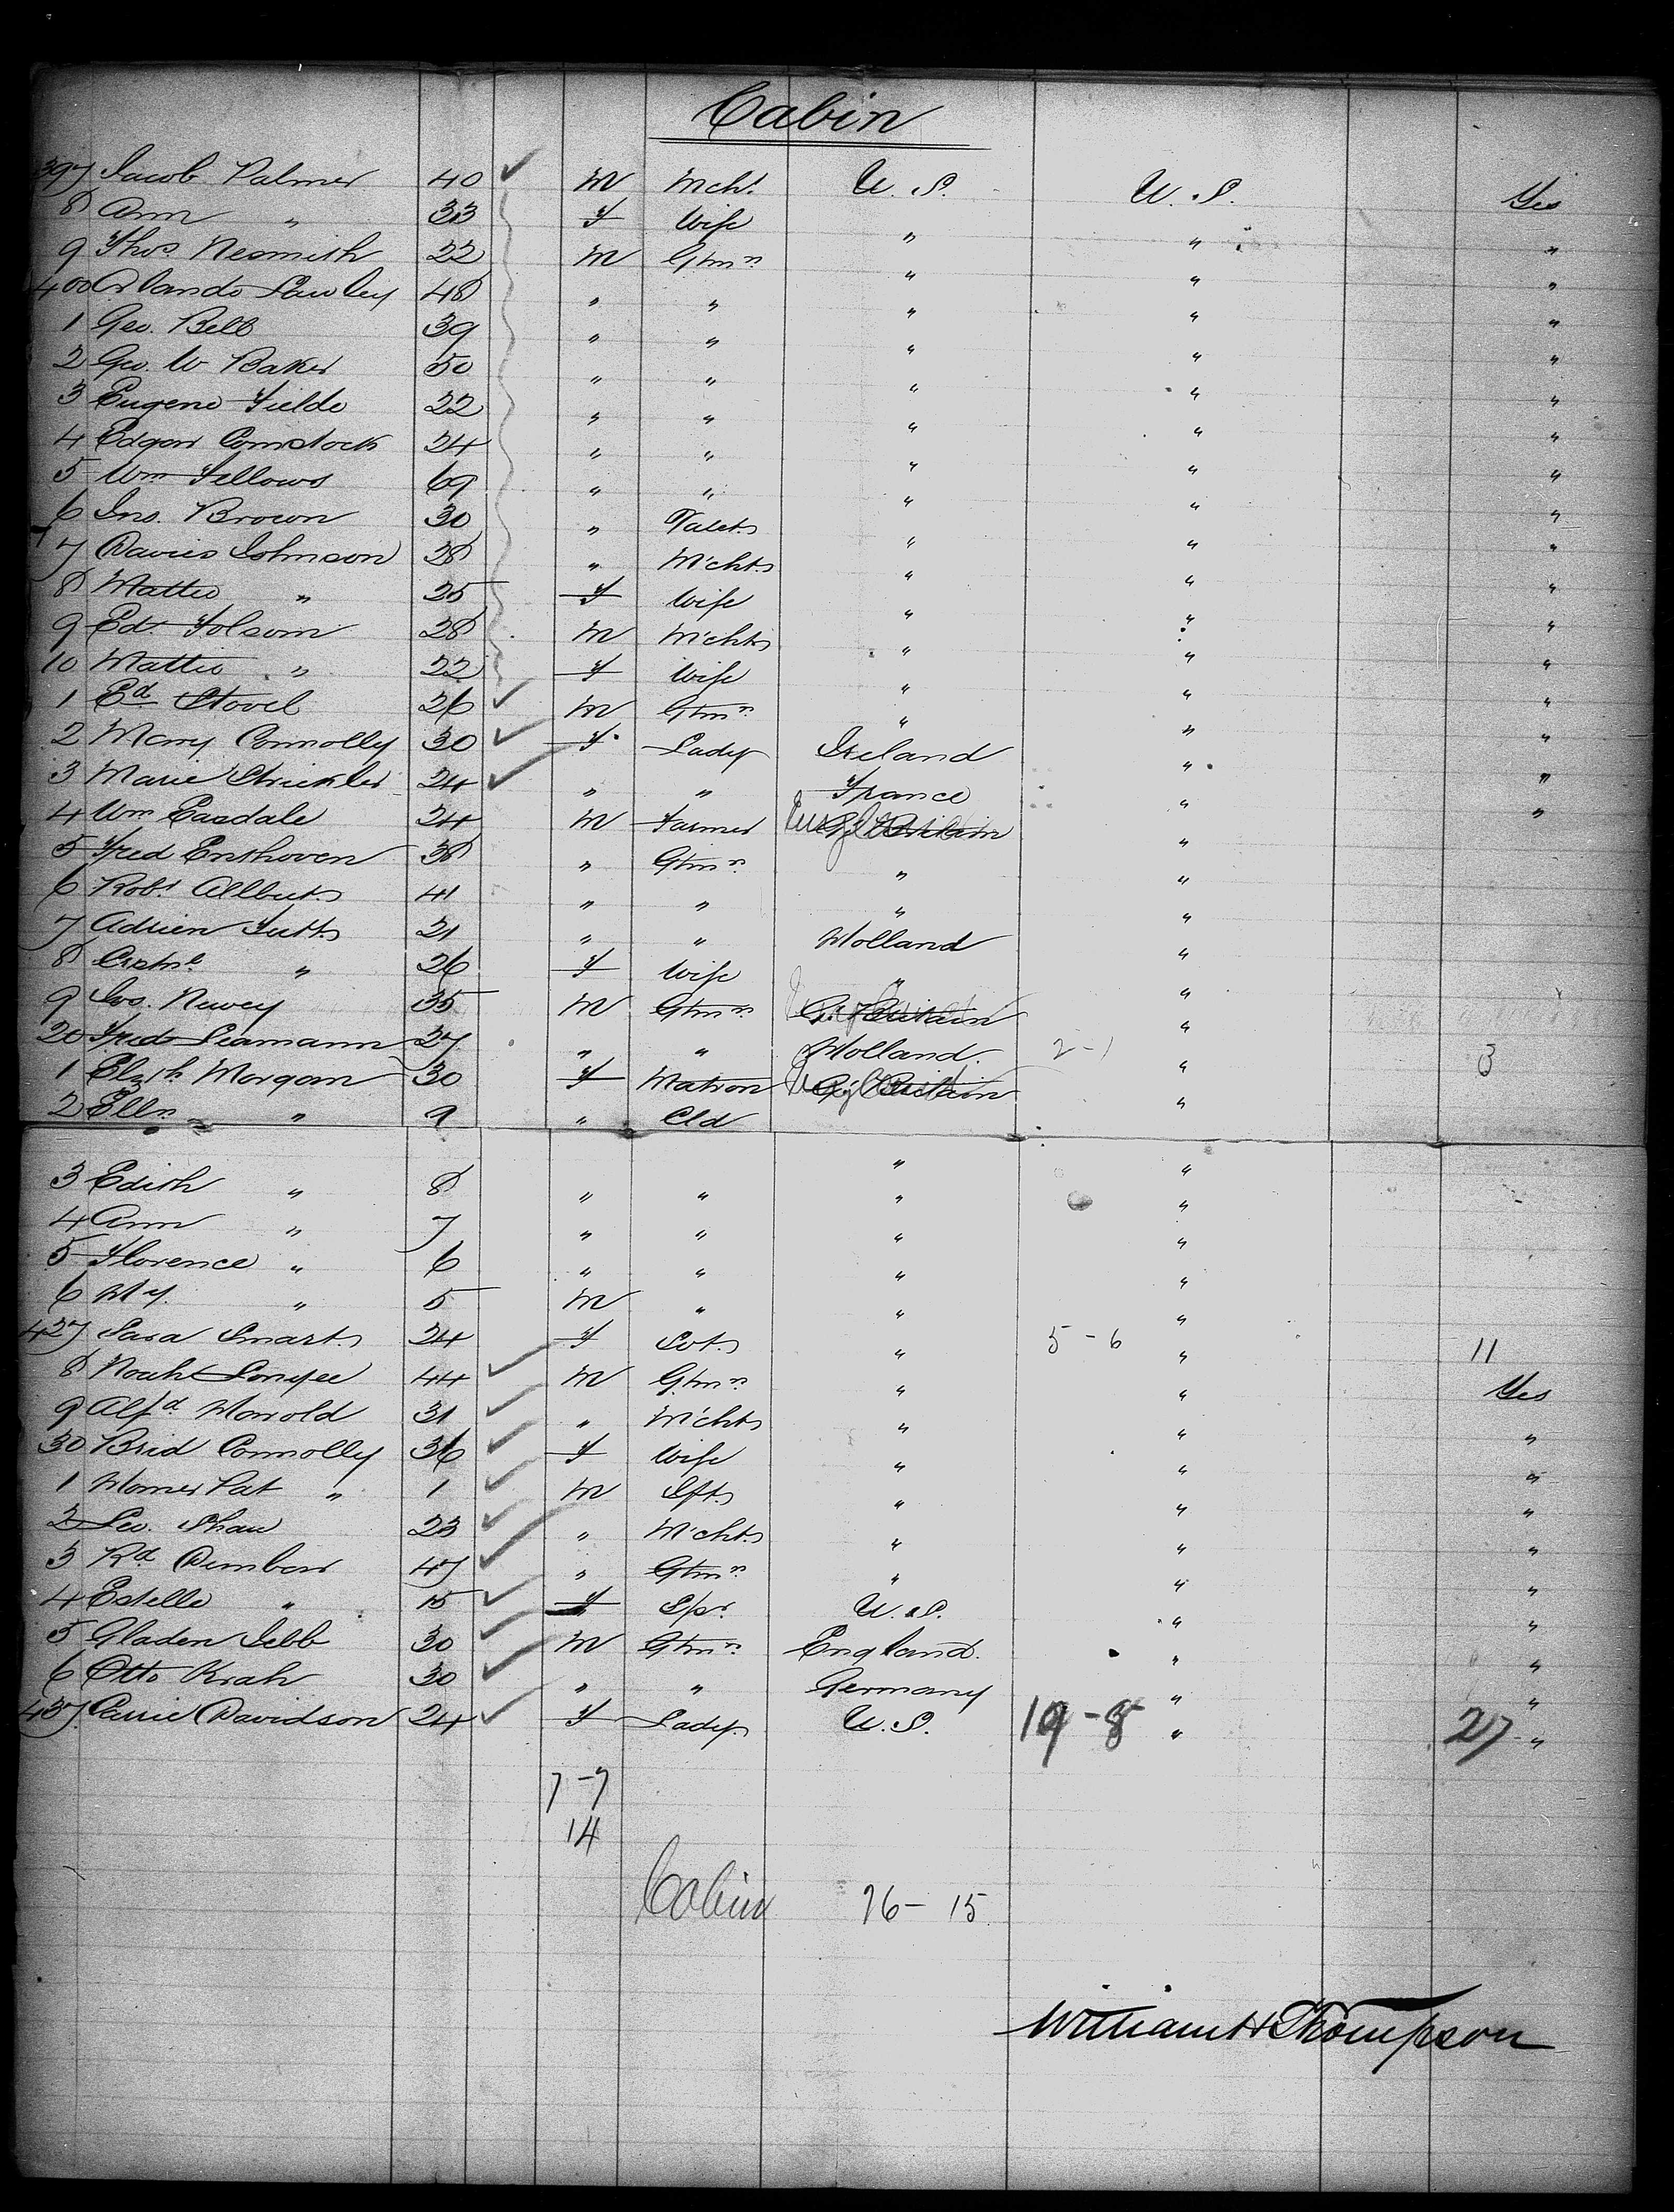 Cabin
397 Jacob Palmer 40 M Mcht. U. S. U. S. Yes
8 Ann " 33 F Wife " " "
9 Thos Nesmith 22 M Gtmn " " "
400 Orlando Lawley 48 " " " " "
1 Geo. Bell 39 " " " " "
2 Geo. W Baker 50 " " " " "
3 Eugene Fielde 22 " " " " "
4 Edgar Comstock 24 " " " " "
5 Wm Fellows 69 " " " " "
6 Jno. Brown 30 " Valet " " "
7 Davies Johnson 28 " Mcht " " "
8 Mattie " 25 F Wife " " "
9 Ed. Folsom 28 M Mcht " " "
10 Mattie " 22 F Wife " " "
1 Ed Stovel 26 M Gtmn " " "
2 Mary Connolly 30 F Lady Ireland " "
3 Marie Strickler 24 " " France " "
4 Wm Easdale 24 M Farmer Gt Britain England "
5 Fred Enthoven 38 " Gtmn " "
6 Robt Allbut 41 " " " "
7 Adrien Tutt 21 " " Holland "
8 " 26 F Wife " "
9 Jos. Newey 35 M Gtmn Gt Britain "
20 Fred Seamann 27 " " Holland. 2-1 " 3
1 Elzth Morgan 30 F Matron Gt Britain England "
2 Elln " 9 " Cld " "
3 Edith " 8 " " " "
4 Ann " 7 " " " "
5 Florence " 6 " " " "
6 Hy. " 5 M " " "
427 Sara Smart 24 F Svt " 5-6 " 11
8 Noah 44 M Gtmn " " Yes
9 Alfd Harold 31 " Mcht " " "
30 Brid Connolly 36 F Wife " " "
1 Homer Pat " 1 M Ift " " "
2 Leo. Shaw 23 " Mcht " " "
3 Rd Denbow 47 " Gtmn " " "
4 Estelle " 15 F Spr U. S. " "
5 Gladen Jebb 30 M Gtmn England. " "
6 Otto Krah 30 " " Germany " "
437 Carrie Davidson 24 F Lady U. S. 19-8 " 27 "
7-7
14
Cabin 26-15
William H Thompson